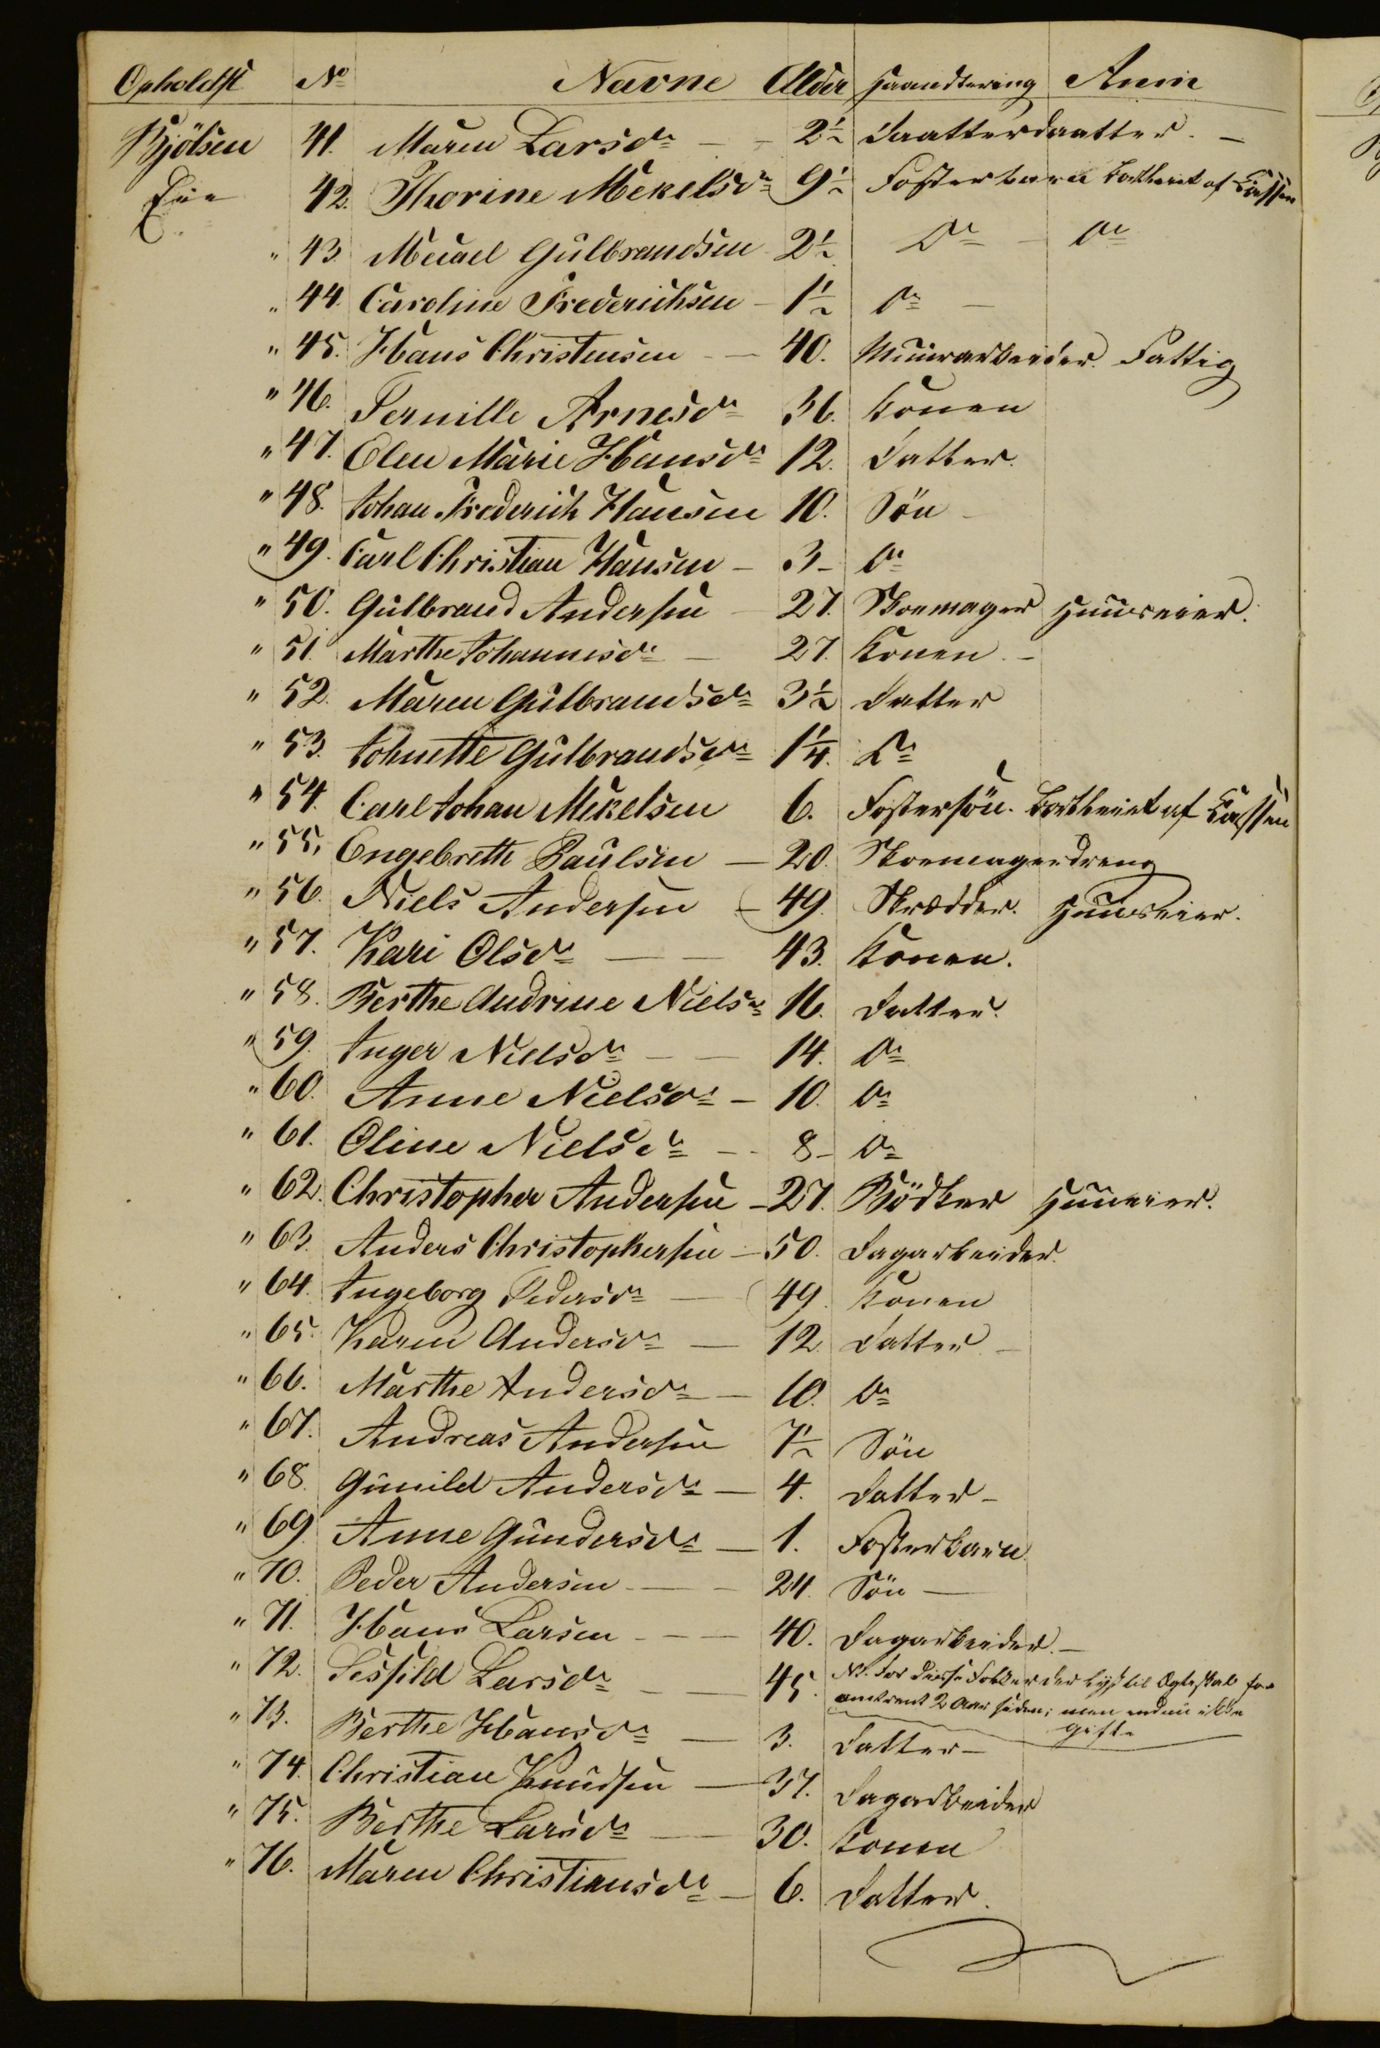 Opholdst No Navne Alder Haandtering Anm
Bjölsen 41. Maren Larsdr 2½ Daatterdaatter. –
Eie 42. Thorine Mekelsdr 9½ Fosterbarn bortleiet af Cassen
" 43 Gulbrandsen 2½ Do Do
" 44. Caroline Frederichsen – 1½ Do –
" 45. Hans Christensen – 40. Muurarbeider. Fattig
" 46. Pernille Arnesdr 36. Konen
" 47. Olea Marie Hansdr 12. Datter.
" 48. Johan Frederich Hansen 10. Sön –
" 49. Carl Christian Hansen – 3 – Do
" 50. Gulbrand Andersen 27. Skomager Huuseier.
" 51. Marthe Johannesdr – 27. Konen –
" 52. Maren Gulbrandsdr 3½ Datter
" 53. Johnette Gulbrandsdr 1¼. Do
" 54. Carl Johan Mikelsen 6. Fostersön. bortleiet af Cassen
" 55. Engebreth Paulsen – 20. Skomagerdreng
" 56. Niels Andersen – 49. Skrædder. Huuseier.
" 57. Kari Olsdr – 43. Konen.
" 58. Berthe Andrine Nielsdr 16. Datter.
" 59. Inger Nielsdr – 14. Do
" 60. Anne Nielsdr – 10. Do
" 61. Oline Nielsdr – 8 – Do
" 62. Christopher Andersen – 27. Bödker Huuseier.
" 63. Anders Christophersen – 50. Dagarbeider.
" 64. Ingeborg Pedersdr – 49. Konen
" 65. Karen Andersdr – 12. Datter –
" 66. Marthe Andersdr – 10. Do
" 67. Andreas Andersen 7½ Sön
" 68. Gunild Andersdr – 4. Datter –
" 69. Anne Gundersdr – 1. Fosterbarn
" 70. Peder Andersen – 24. Sön –
" 71. Hans Larsen – 40. Dagarbeider. –
" 72. Larsdr – 45. NB. For disse Folk er der lyst til Ægteskab for
omtrent 2 Aar siden; men endnu ikke
gifte
" 73. Berthe Hansdr – 3. Datter –
" 74. Christian Knudsen – 37. Dagarbeider
" 75. Berthe Larsdr – 30. Konen
" 76. Maren Christiansdr – 6. Datter.